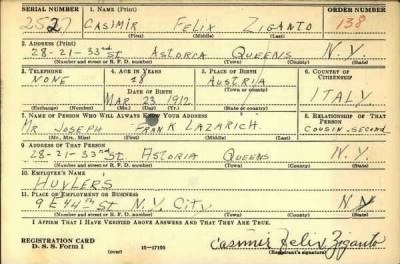 SERIAL NUMBER 1. NAME (Print) ORDER NUMBER
2527 CASIMIR FELIX ZIGANTO 138
(First) (Middle) (Last)
2. ADDRESS (Print)
28-21-33rd St. ASTORIA QUEENS N.Y.
(Number and street or R. F. D. number) (Town) (County) (State)
3. TELEPHONE 4. AGE IN YEARS 5. PLACE OF BIRTH 6. COUNTRY OF CITIZENSHIP
NONE 28 AUSTRIA
DATE OF BIRTH (Town or county)
MAR 23 1912 ITALY
(Exchange) (Number) (Mo.) (Day) (Yr.) (State or country)
7. NAME OF PERSON WHO WILL ALWAYS KNOW YOUR ADDRESS 8. RELATIONSHIP OF THAT PERSON
MR JOSEPH FRANK LAZARICH. COUSIN-SECOND
(Mr., Mrs., Miss) (First) (Middle) (Last)
9. ADDRESS OF THAT PERSON
28-21-33rd St. ASTORIA QUEENS N.Y.
(Number and street or R. F. D. number) (Town) (County) (State)
10. EMPLOYER'S NAME
HUYLER'S
11. PLACE OF EMPLOYMENT OR BUSINESS
9 E 44th St N.Y. CITY N.Y.
(Number and street or R. F. D. number) (Town) (County) (State)
I AFFIRM THAT I HAVE VERIFIED ABOVE ANSWERS AND THAT THEY ARE TRUE.
REGISTRATION CARD
D. S. S. Form 1 (over) 16-17105 Casimir Felix Ziganto
(Registrant's signature)